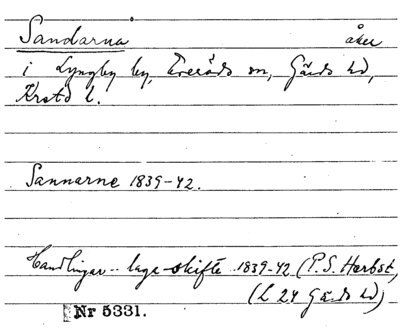 Sandarna åker
i Lyngby by, Everöds sn, Gärds hd,
Krstd l.
Sannarne 1839-42.
Handlingar - laga skifte 1839-42 (P.S. Herbst,
(L 24 Gärds hd)
Nr 5331.